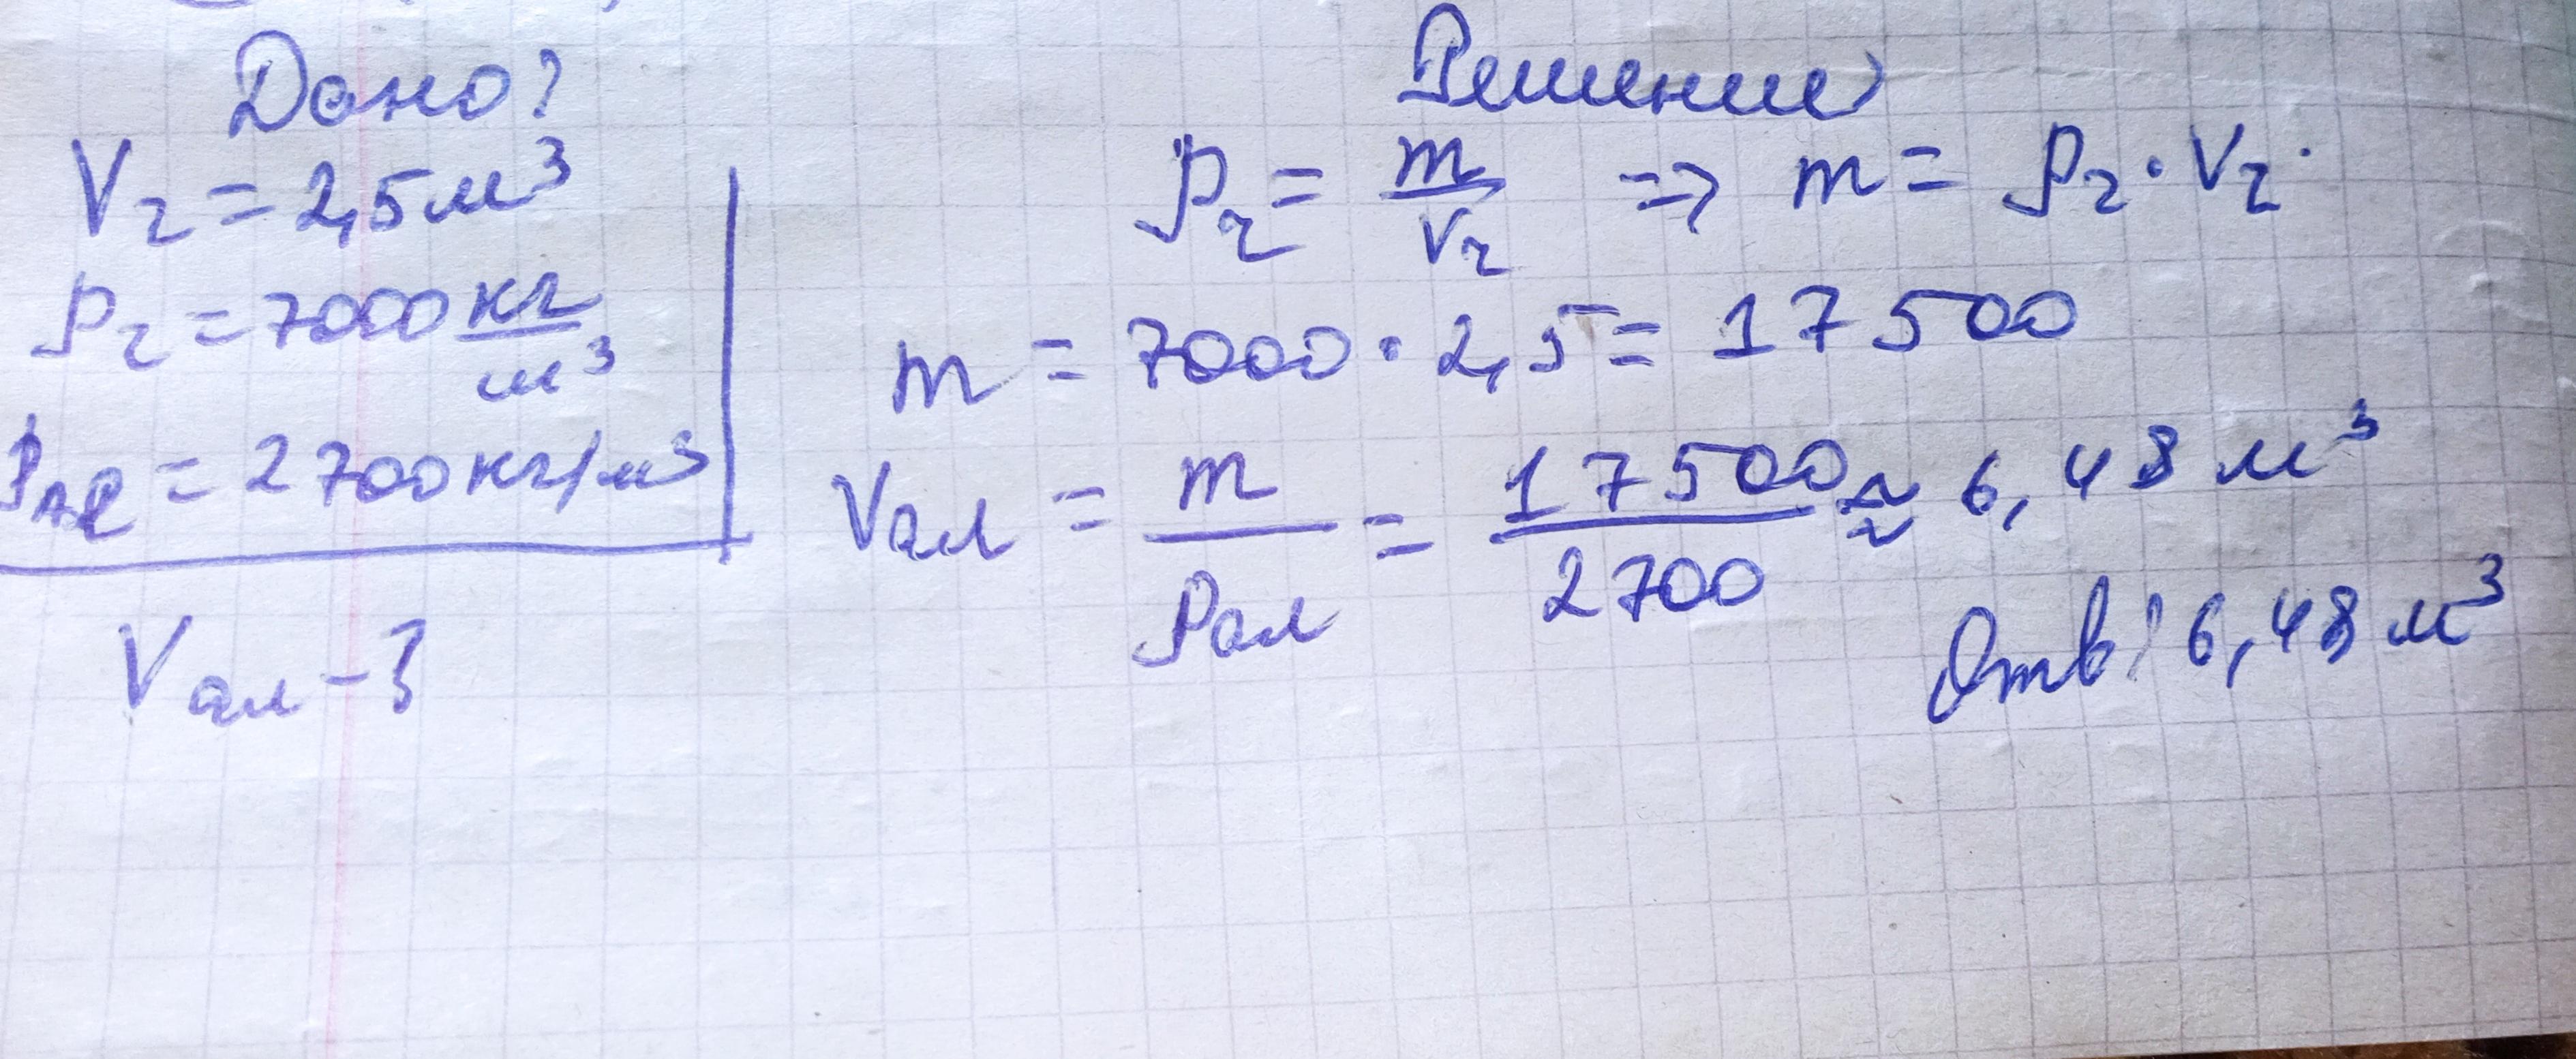 Дано:
V₂ = 2,5 м³
ρ₂ = 7000 кг/м³
ρал = 2700 кг/м³
Vал - ?
Решение
ρ₂ = m/V₂ => m = ρ₂ · V₂.
m = 7000 · 2,5 = 17500
Vал = m/ρал = 17500/2700 ≈ 6,48 м³
Отв: 6,48 м³